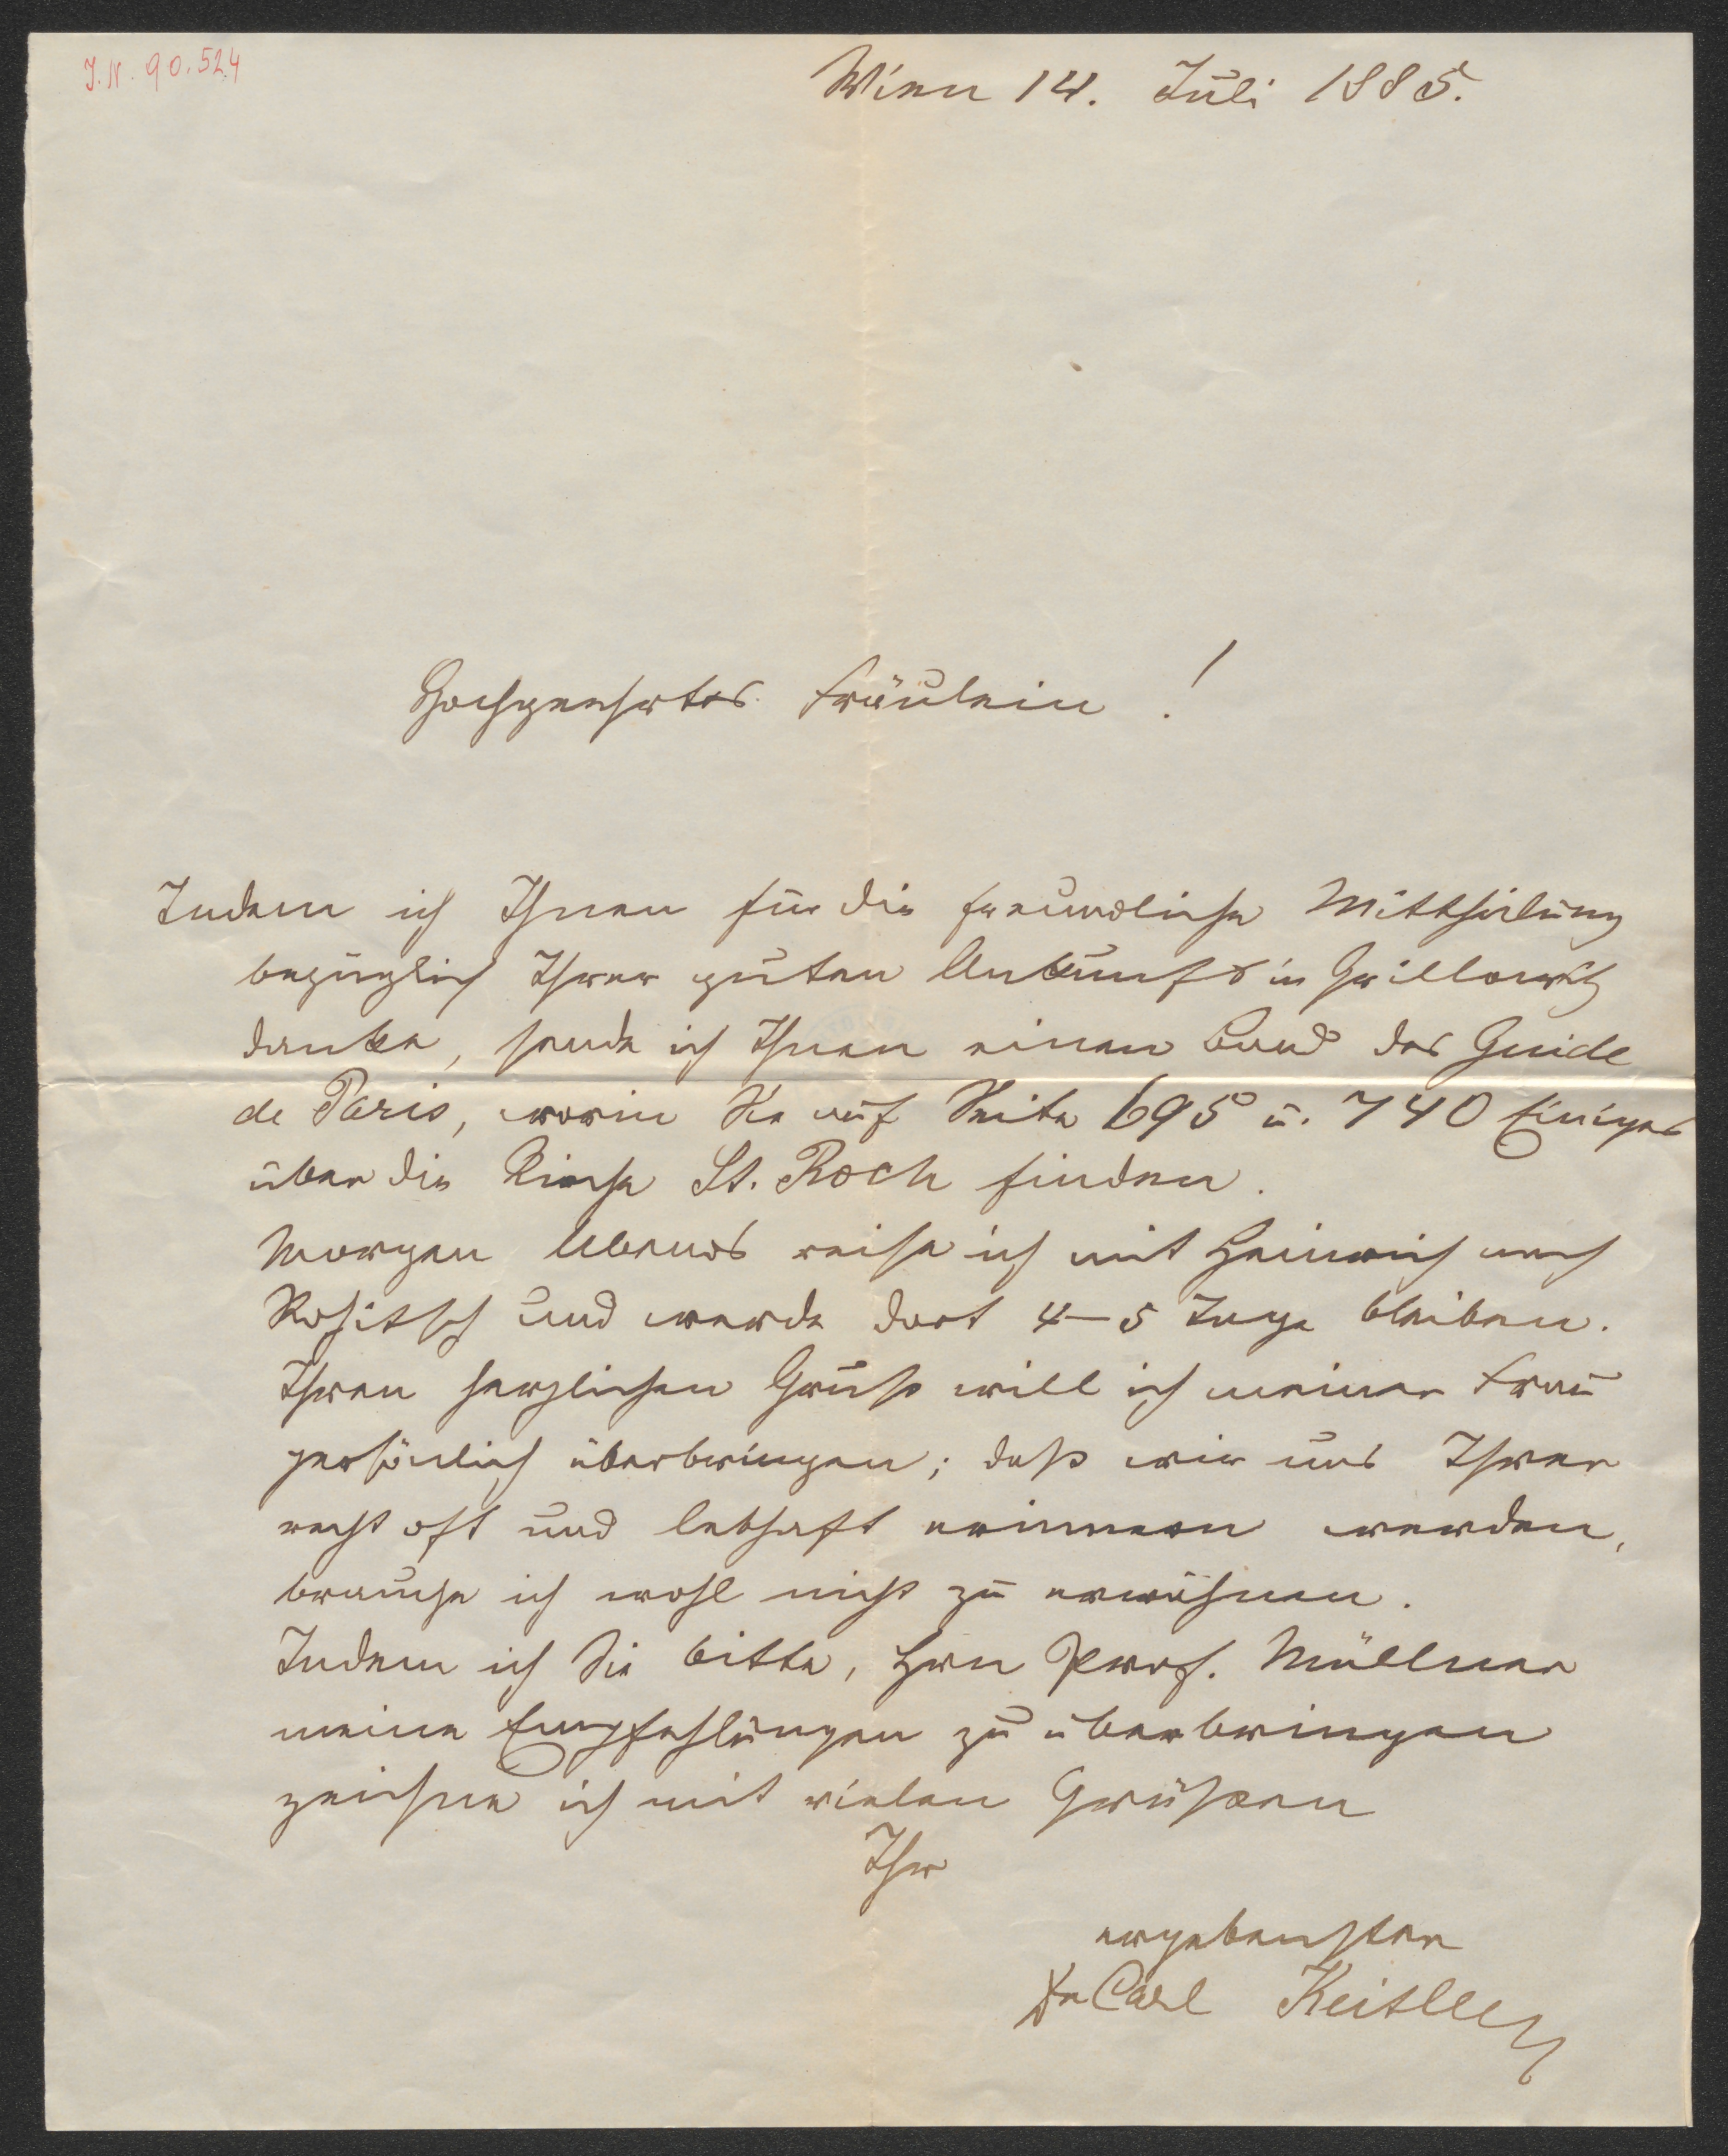 J.N. 90.524
Wien 14. Juli 1885.
Hochgeehrtes Fräulein!
Indem ich Ihnen für die freundliche Mittheilung
bezüglich Ihrer guten Ankunft in Grillowitz
danke, sende ich Ihnen einen Band des Guide
de Paris, worin Sie auf Seite 695 u. 740 Einiges
über die Kirche St. Roch finden.
Morgen Abends reise ich mit Heinrich nach
Rohitsch und werde dort 4–5 Tage bleiben.
Ihren herzlichen Gruß will ich meiner Frau
persönlich überbringen; daß wir uns Ihrer
recht oft und lebhaft erinnern werden,
brauche ich wohl nicht zu erwähnen.
Indem ich Sie bitte, Hrn Prof. Müllner
meine Empfehlungen zu überbringen
zeichne ich mit vielen Grüßen
Ihr
ergebenster
Dr Carl Keitler